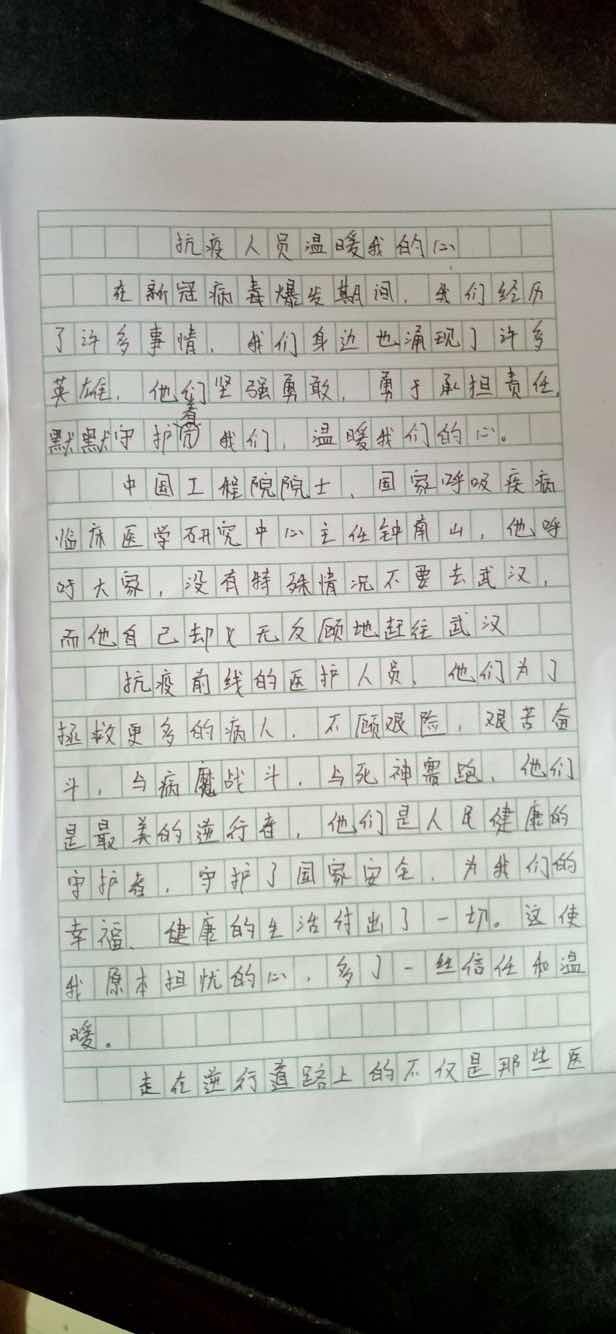 抗疫人员温暖我的心
在新冠病毒爆发期间，我们经历
了许多事情，我们身边也涌现了许多
英雄，他们坚强勇敢，勇于承担责任，
默默守护着我们，温暖我们的心。
中国工程院院士、国家呼吸疾病
临床医学研究中心主任钟南山，他呼
吁大家，没有特殊情况不要去武汉，
而他自己却义无反顾地赶往武汉
抗疫前线的医护人员，他们为了
拯救更多的病人，不顾艰险，艰苦奋
斗，与病魔战斗，与死神赛跑，他们
是最美的逆行者，他们是人民健康的
守护者，守护了国家安全，为我们的
幸福、健康的生活付出了一切。这使
我原本担忧的心，多了一丝信任和温
暖。
走在逆行道路上的不仅是那些医